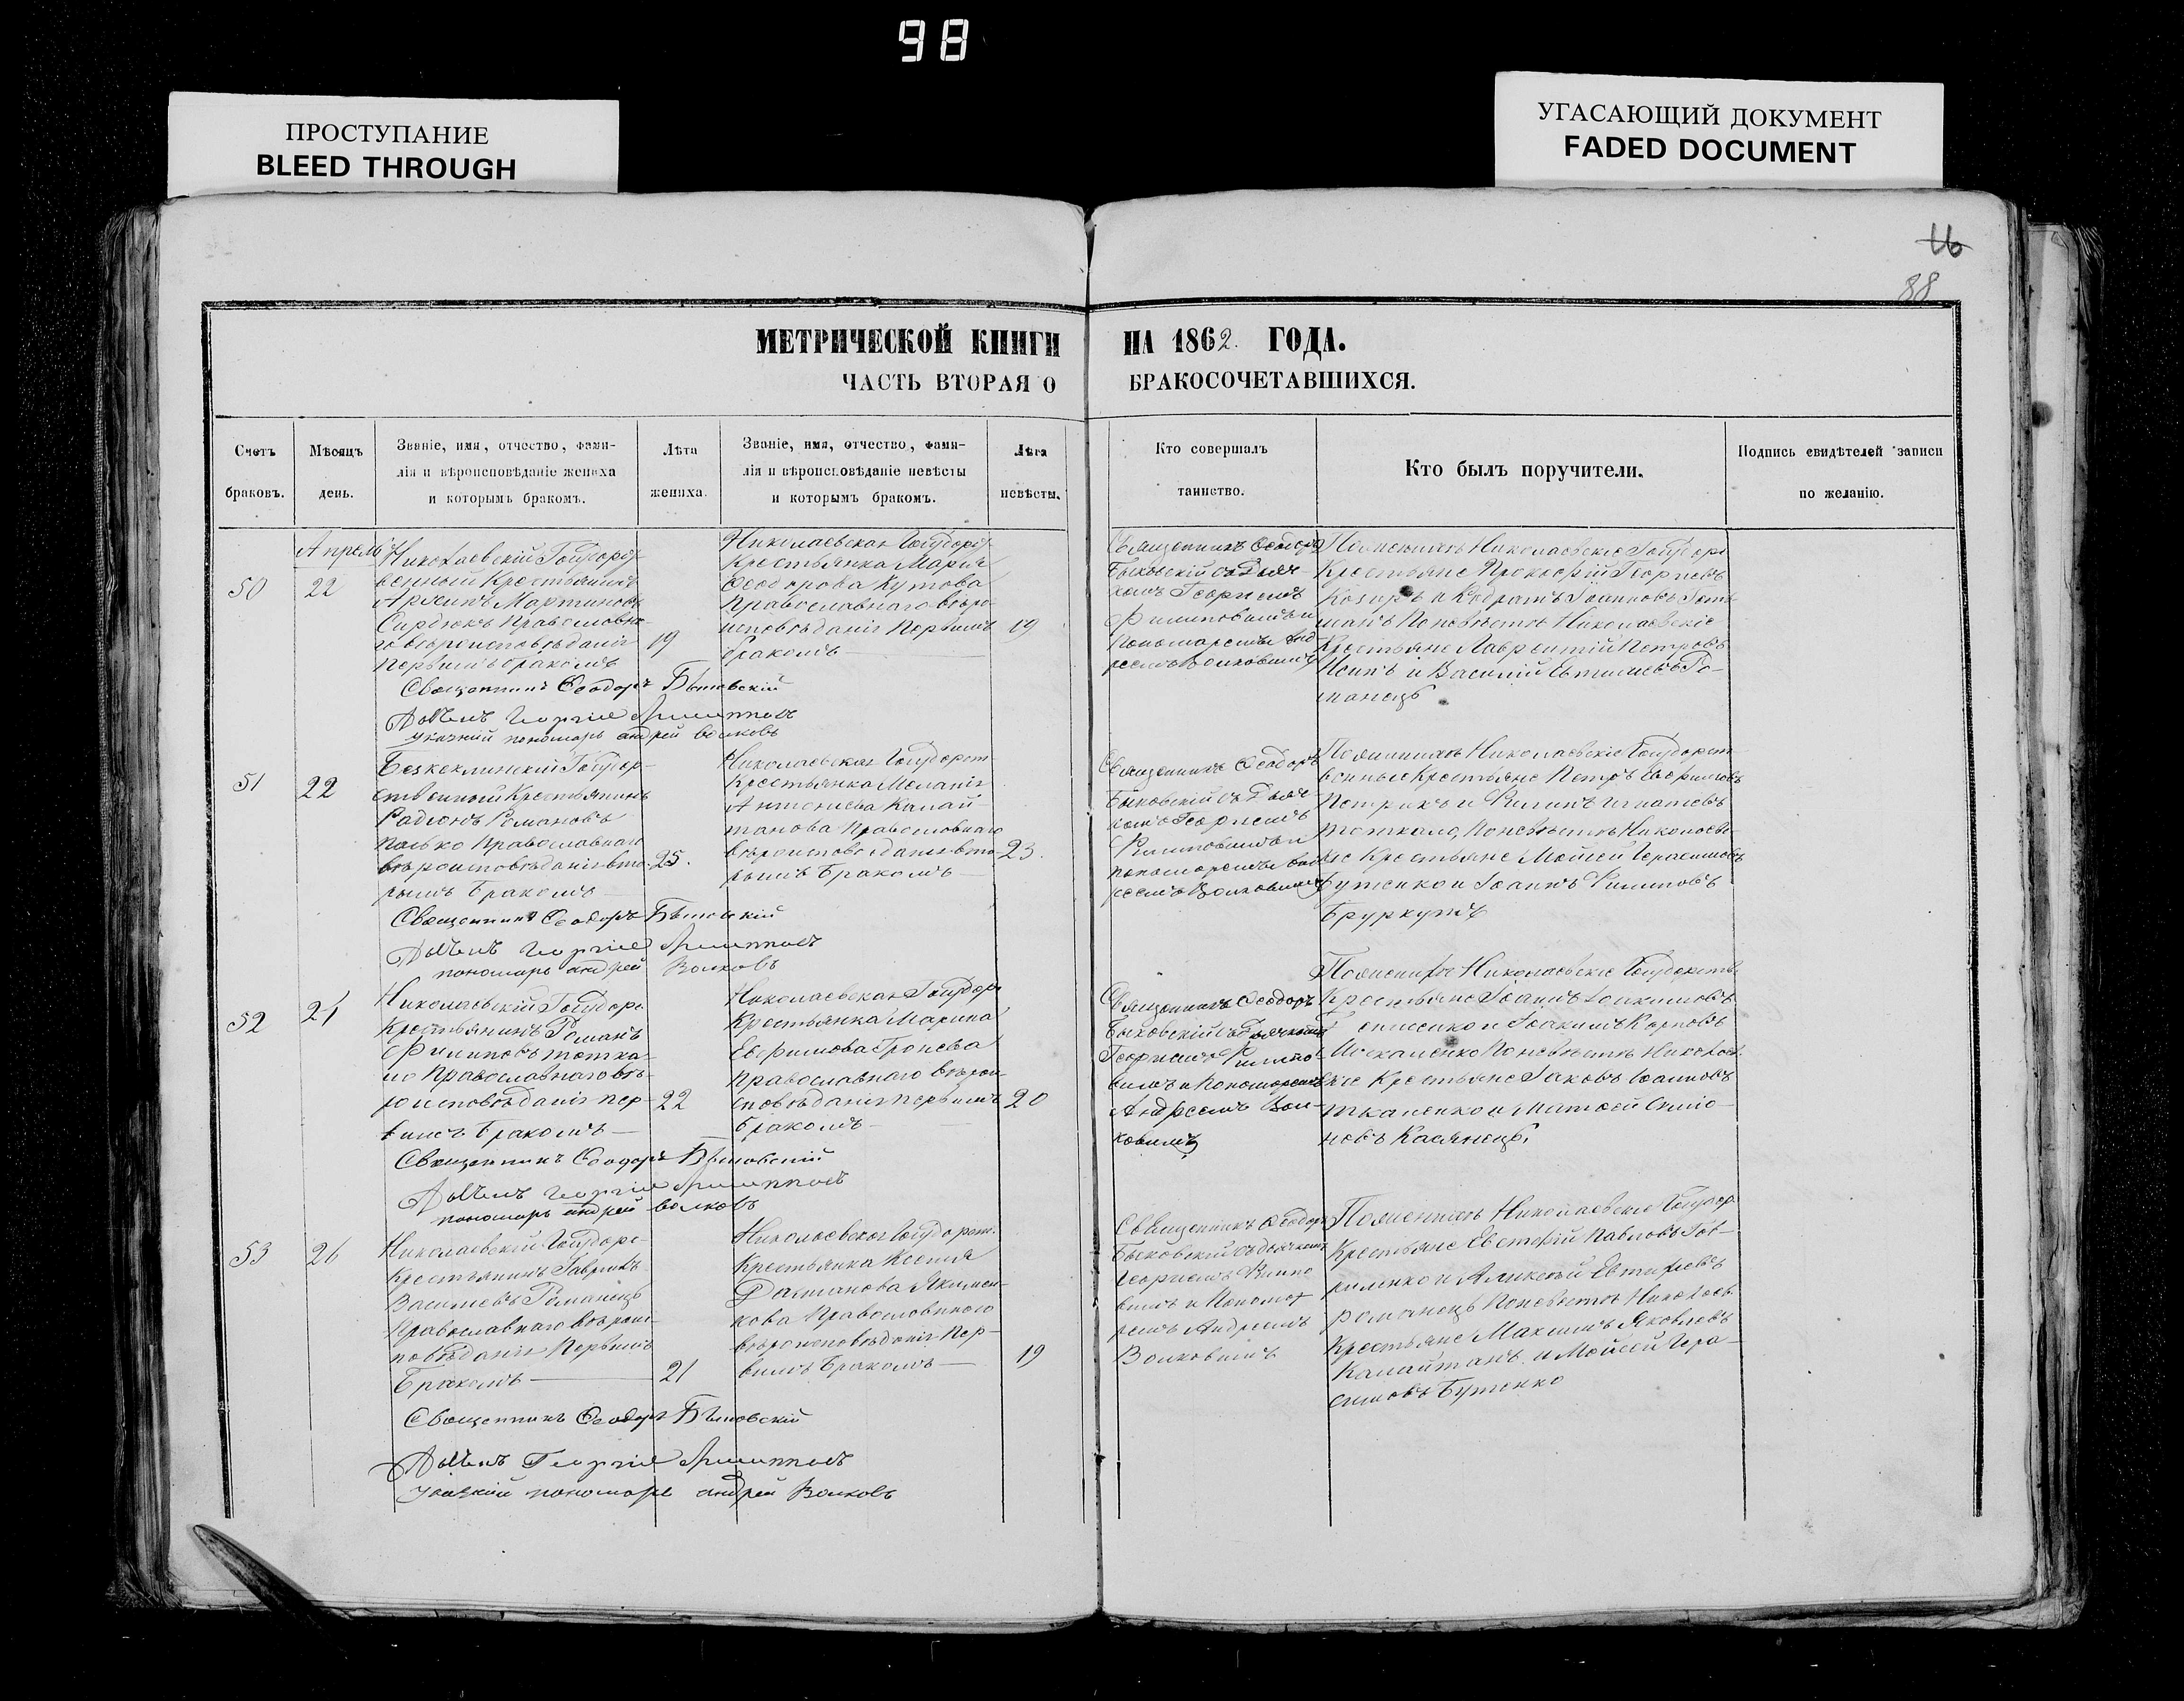 98
ПРОСТУПАНИЕ
BLEED THROUGH
УГАСАЮЩИЙ ДОКУМЕНТ
FADED DOCUMENT
88
МЕТРИЧЕСКОЙ КНИГИ НА 1862. ГОДА.
ЧАСТЬ ВТОРАЯ О БРАКОСОЧЕТАВШИХСЯ.
Счетъ
браковъ.
Мѣсяцъ
день.
Званіе, имя, отчество, фами-
лія и вѣроисповѣданіе жениха
и которымъ бракомъ.
Лѣта
жениха.
Званіе, имя, отчество, фами-
лія и вѣроисповѣданіе невѣсты
и которымъ бракомъ.
Лѣта
невѣсты.
Кто совершалъ
таинство.
Кто былъ поручители.
Подпись свидѣтелей записи
по желанію.
50
Апрель
22
Николаевскій Государ
венный Крестьянинъ
Мартиновъ
Сердюкъ Православна
го вѣроисповѣданія
первымъ бракомъ
19
Николаевская Государ
Крестьянка Марія
Феодорова Кутова
Православнаго вѣро
исповѣданія Первымъ
бракомъ
19
Священникъ Феодоръ
Быковскій съ Дьяч
комъ Георгіемъ
Филиповымъ и
Пономаремъ Анд
реемъ Волковымъ
По женихѣ Николаевскіе Государ
Крестьяне Прокофій Георгіевъ
Козырь и Іоанновъ
По невѣстѣ Николаевскіе
Крестьяне Лаврентій Петровъ
и Василій Евтихіевъ Ро-
манецъ
Священникъ Феодоръ Быковскій
Дьячекъ Георгій Филипповъ
указный пономарь андрей волковъ
51
22
Государ-
ственный Крестьянинъ
Радіонъ Романовъ
Православнаго
вѣроисповѣданія вто-
рымъ Бракомъ
25.
Николаевская Государст
Крестьянка Меланія
Антоніева Калай-
танова Православнаго
вѣроисповѣданія вто-
рымъ Бракомъ
23.
Священникъ Феодоръ
Быковскій съ Дьяч-
комъ Георгіемъ
Филиповымъ и
пономаремъ Анд
реемъ Волковымъ
По женихѣ Николаевскіе Государст
венные Крестьяне Петръ Ефимовъ
Петрикъ и Филипъ Игнатовъ
По невѣстѣ Николаев-
скіе Крестьяне Мойсей Герасимовъ
Бутенко и Іоаннъ Филиповъ
Священникъ Феодоръ Быковскій
Дьячекъ Георгій Филипповъ
пономарь андрей Волковъ
52
Николаевскій Государ
Крестьянинъ Романъ
Филиповъ
Православнаго вѣ-
роисповѣданія пер-
вымъ Бракомъ
22
Николаевская Государ
Крестьянка Марина
Ефимова
Православнаго вѣрои
сповѣданія первымъ
бракомъ
20
Священникъ Феодоръ
Быковскій съ Дьячкомъ
Георгіемъ Филипо
вымъ и Пономаремъ
Андреемъ Вол-
ковымъ
По женихѣ Николаевскіе Государств
Крестьяне Іоаннъ
и Іоакимъ Карповъ
По невѣстѣ Николаев
скіе Крестьяне Іаковъ Іоанновъ
Ткаченко и Матфей Симо
новъ Касянецъ.
Священникъ Феодоръ Быковскій
Дьячекъ Георгій Филипповъ
пономарь андрей волковъ
53
26
Николаевскій Государс
Крестьянинъ Гавріилъ
Васильевъ Романецъ
Православнаго вѣроис
повѣданія Первымъ
Бракомъ
21
Николаевская Государст.
Крестьянка Ксенія
Якимен-
кова Православнаго
вѣроисповѣданія Пер-
вымъ Бракомъ
19
Священникъ Феодоръ
Быковскій съ дьячкомъ
Георгіемъ Филипо
вымъ и Понома
ремъ Андреемъ
Волковымъ
По женихѣ Николаевскіе Государ
Крестьяне Евстафій Павловъ Гав-
риленко и Алексѣй Евтихіевъ
Романецъ По невѣстѣ Николаев
Крестьяне Максимъ Яковлевъ
Калайтанъ и Мойсей Гера-
симовъ Бутенко
Священникъ Феодоръ Быковскій
Дьячекъ Георгій Филипповъ
указный пономарь андрей Волковъ